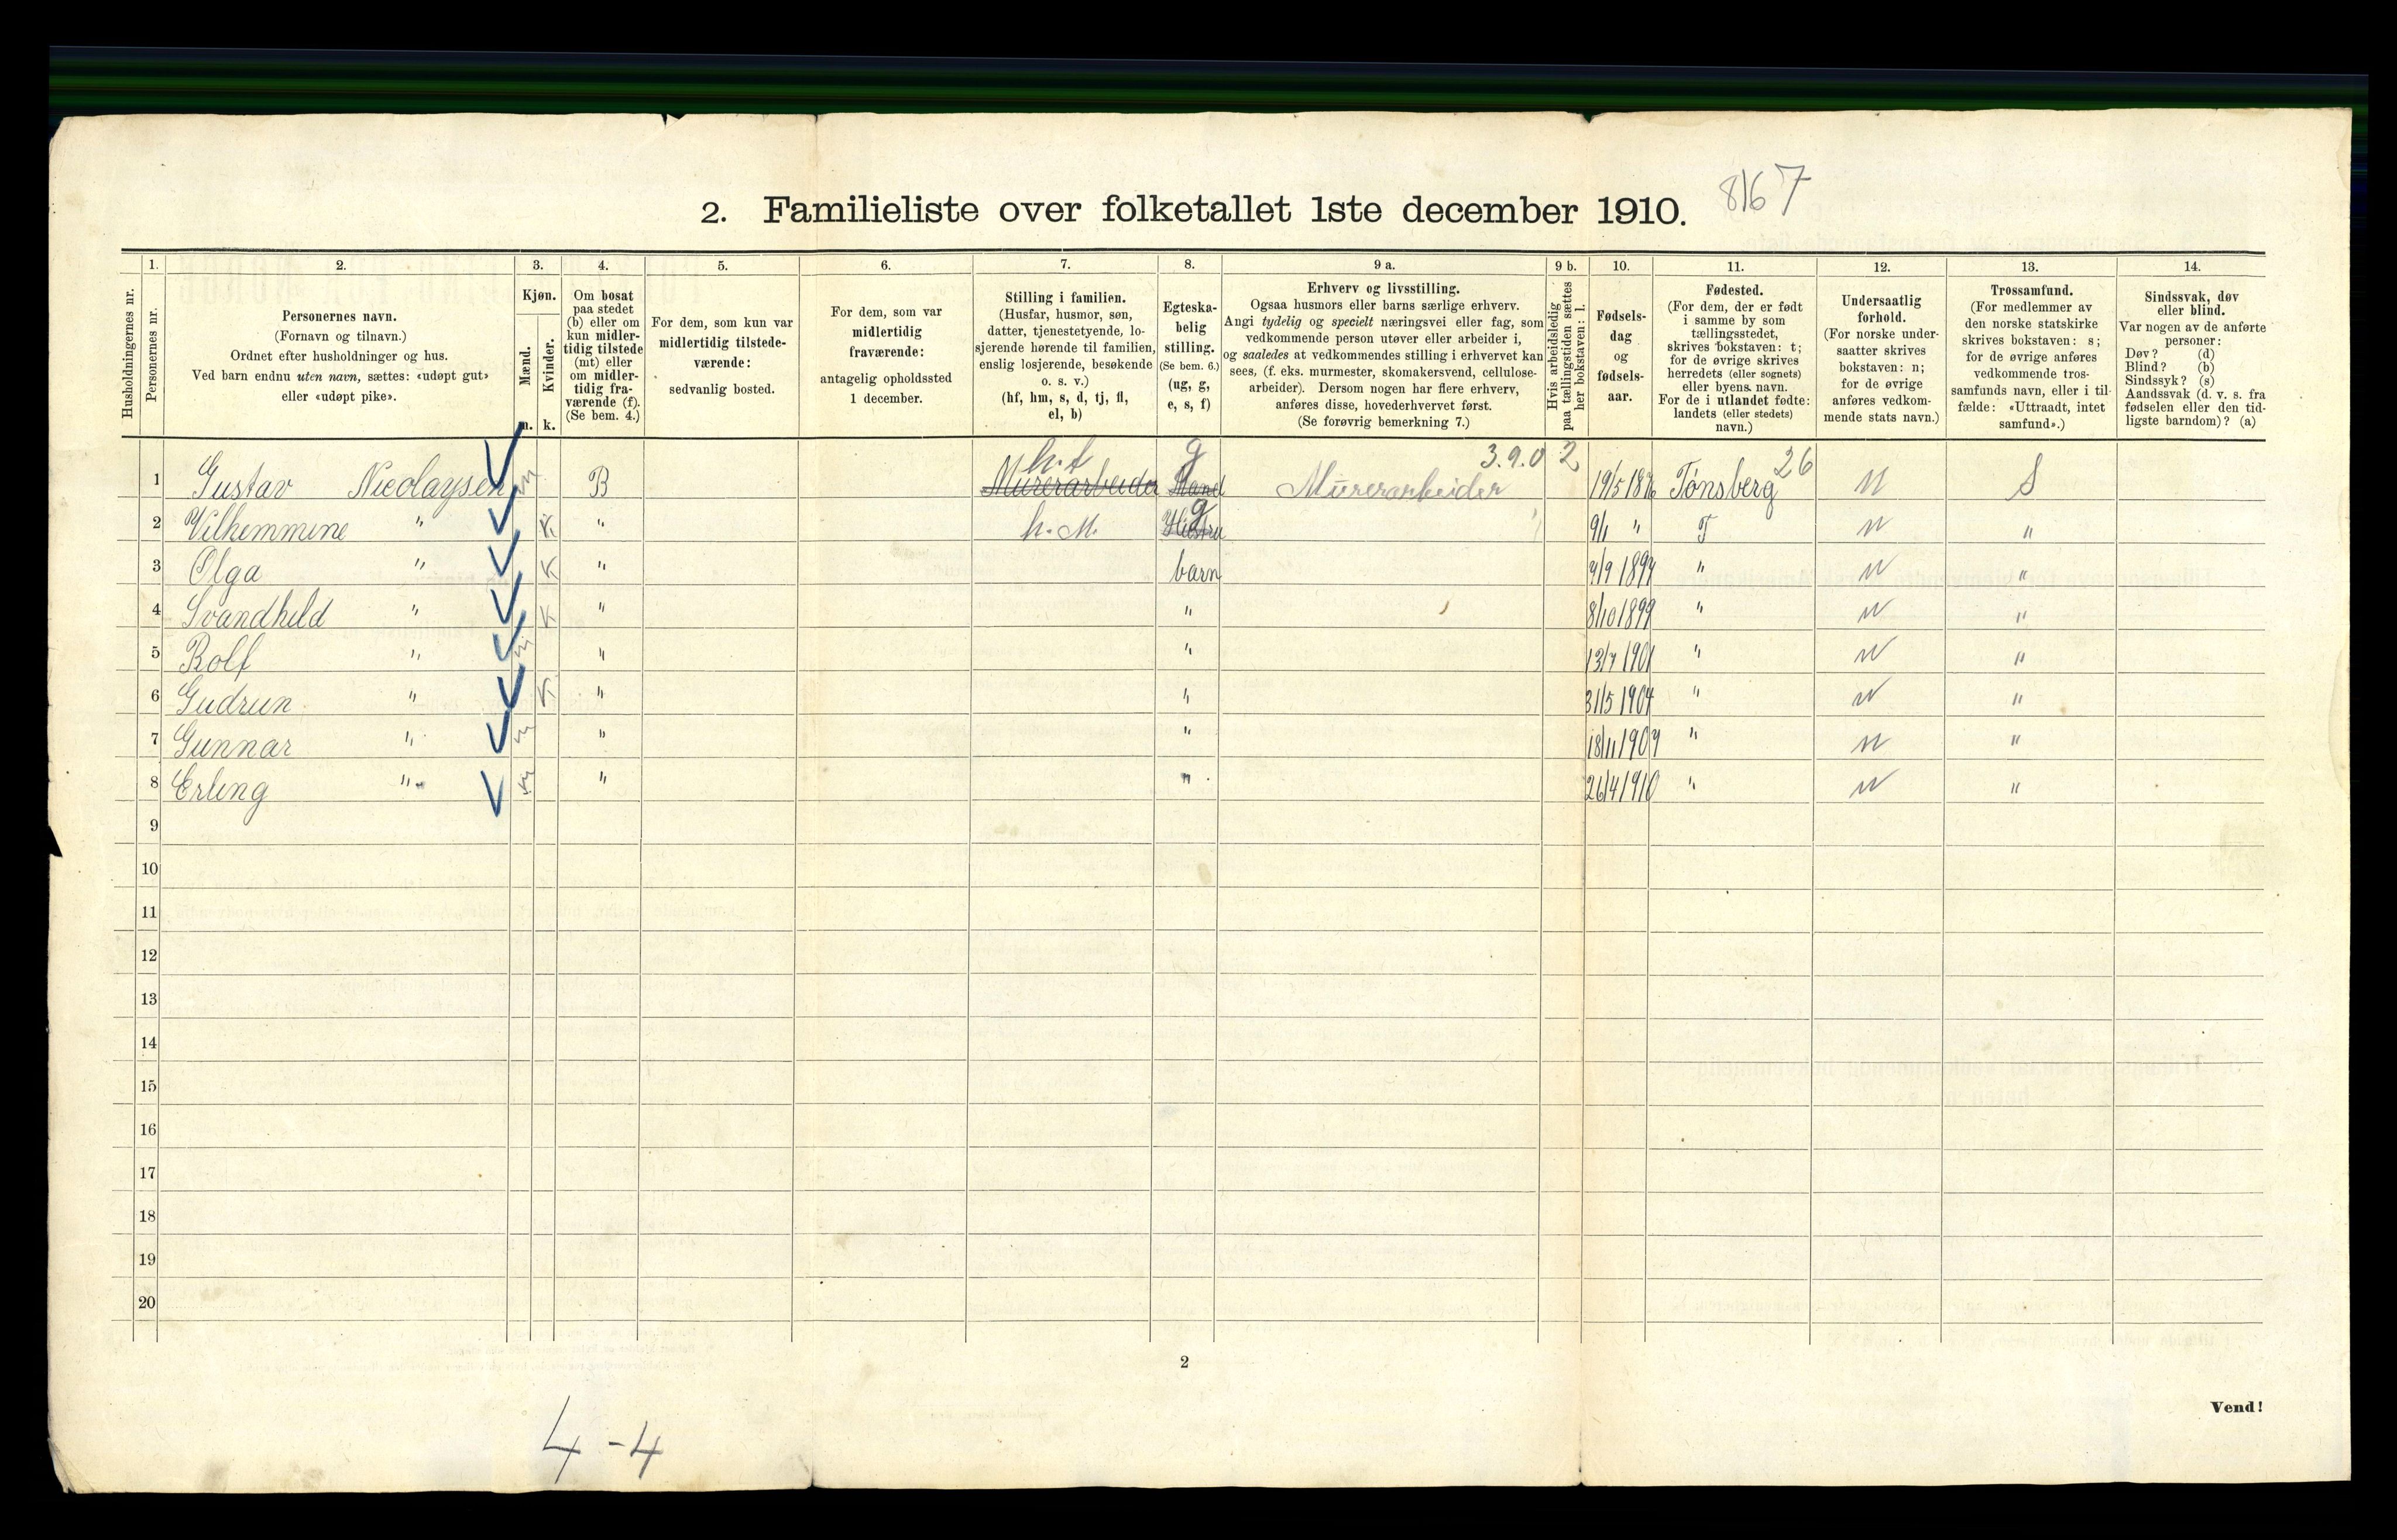 8167
2. Familieliste over folketallet 1ste december 1910.
Husholdningernes nr.
1.
Personernes nr.
2.
Personernes navn.
(Fornavn og tilnavn.)
Ordnet efter husholdninger og hus.
Ved barn endnu uten navn, sættes: «udøpt gut»
eller «udøpt pike».
3.
Kjøn.
Mænd.
Kvinder.
m. k.
4.
Om bosat
paa stedet
(b) eller om
kun midler-
tidig tilstede
(mt) eller
om midler-
tidig fra-
værende (f).
(Se bem. 4.)
5.
For dem, som kun var
midlertidig tilstede-
værende:
sedvanlig bosted.
6.
For dem, som var
midlertidig
fraværende:
antagelig opholdssted
1 december.
7.
Stilling i familien.
(Husfar, husmor, søn,
datter, tjenestetyende, lo-
sjerende hørende til familien,
enslig losjerende, besøkende
o. s. v.)
(hf, hm, s, d, tj, fl,
el, b)
8.
Egteska-
belig
stilling.
(Se bem. 6.)
(ug, g,
e, s, f)
9 a.
Erhverv og livsstilling.
Ogsaa husmors eller barns særlige erhverv.
Angi tydelig og specielt næringsvei eller fag, som
vedkommende person utøver eller arbeider i,
og saaledes at vedkommendes stilling i erhvervet kan
sees, (f. eks. murmester, skomakersvend, cellulose-
arbeider). Dersom nogen har flere erhverv,
anføres disse, hovederhvervet først.
(Se forøvrig bemerkning 7.)
9 b.
Hvis arbeidsledig
paa tællingstiden sættes
her bokstaven: l.
10.
Fødsels-
dag
og
fødsels-
aar.
11.
Fødested.
(For dem, der er født
i samme by som
tællingsstedet,
skrives bokstaven: t;
for de øvrige skrives
herredets (eller sognets)
eller byens navn.
For de i utlandet fødte:
landets (eller stedets)
navn.)
12.
Undersaatlig
forhold.
(For norske under-
saatter skrives
bokstaven: n;
for de øvrige
anføres vedkom-
mende stats navn.)
13.
Trossamfund.
(For medlemmer av
den norske statskirke
skrives bokstaven: s;
for de øvrige anføres
vedkommende tros-
samfunds navn, eller i til-
fælde: «Uttraadt, intet
samfund».)
14.
Sindssvak, døv
eller blind.
Var nogen av de anførte
personer:
Døv? (d)
Blind? (b)
Sindssyk? (s)
Aandssvak (d. v. s. fra
fødselen eller den tid-
ligste barndom)? (a)
h.f g 3.9.0 2 26
1 Gustav Nicolaysen m B Murerarbeider Mand Murerarbeider 19/5 1876 Tønsberg N S
2 Vilhemmine " K " h.M. g Hustru 9/1 " T N "
3 Olga " K " barn " N "
4 Svandhild " K " " 8/10 1899 " N "
5 Rolf " m " " 13/7 1901 " N "
6 Gudrun " K " " 31/5 1904 " N "
7 Gunnar " m " " " N "
8 Erling " m " " 26/4 1910 " N "
9
10
11
12
13
14
15
16
17
18
19
20
2
Vend!
4-4